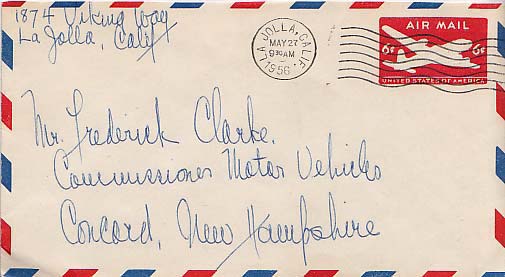 1874 Viking Way
La Jolla, Calif
LA JOLLA, CALIF.
MAY 27
9 30 AM
1956
AIR MAIL
6¢ 6¢
UNITED STATES OF AMERICA
Mr. Frederick Clarke,
Commissioner Motor Vehicles
Concord, New Hampshire